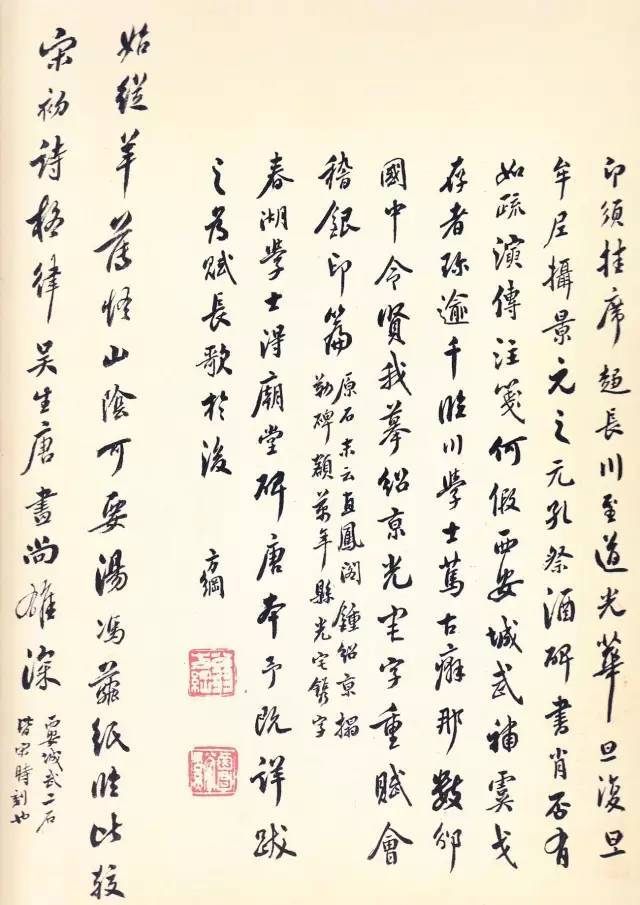 印須挂席趨長川至道光華旦復旦
牟尼攝景元之元孔祭酒碑書肖否有
如疏演傳注箋何假西安城武補虞戈
存者珎逾千臨川學士篤古癖那數邠
國中令賢我摹紹京光宅字重賦會
稽銀印篇
原石末云直鳳閣鍾紹京搨
勒碑額萬年縣光宅鐫字
春湖學士得廟堂碑唐本予既詳跋
之爲賦長歌於後
方綱
姑從羊薄悟山陰可要湯馮繭紙臨比較
宋初詩格律吴生唐畫尚雄深
西安城武二石
皆宋時刻也